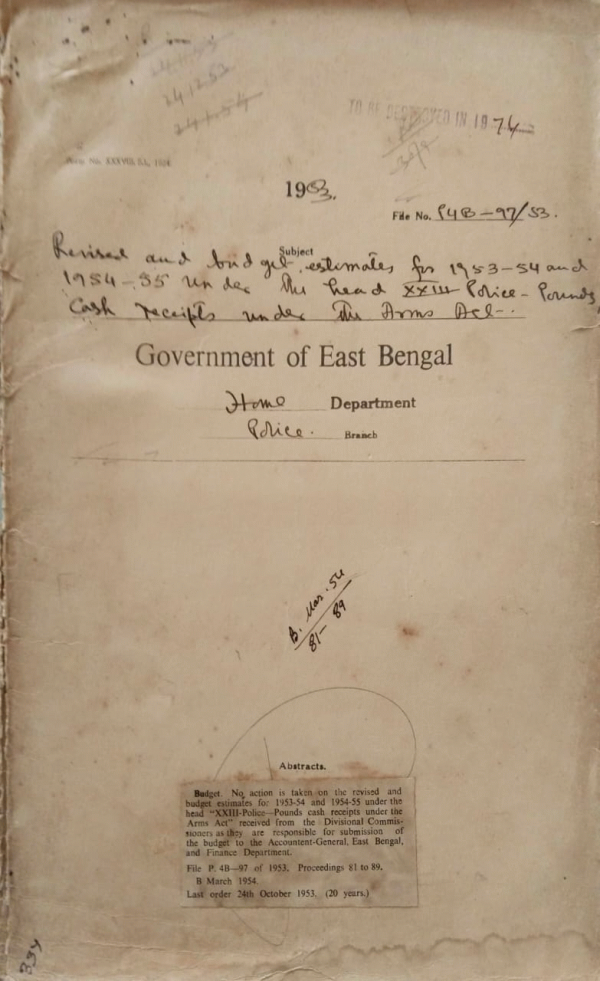 24.12.53
24.1.54
TO BE DESTROYED IN 1974
1953.
File No. P4B-97/53.
Subject
Revised and budget estimates for 1953-54 and
1954-55 under the head XXIII-Police-Pounds,
Cash receipts under the Arms Act.
Government of East Bengal
Home Department
Police. Branch
B. Mar. 54
81-89
Abstracts.
Budget. No action is taken on the revised and
budget estimates for 1953-54 and 1954-55 under the
head "XXIII-Police—Pounds cash receipts under the
Arms Act" received from the Divisional Commis-
sioners as they are responsible for submission of
the budget to the Accountent-General, East Bengal,
and Finance Department.
File P. 4B—97 of 1953, Proceedings 81 to 89,
B March 1954.
Last order 24th October 1953. (20 years.)